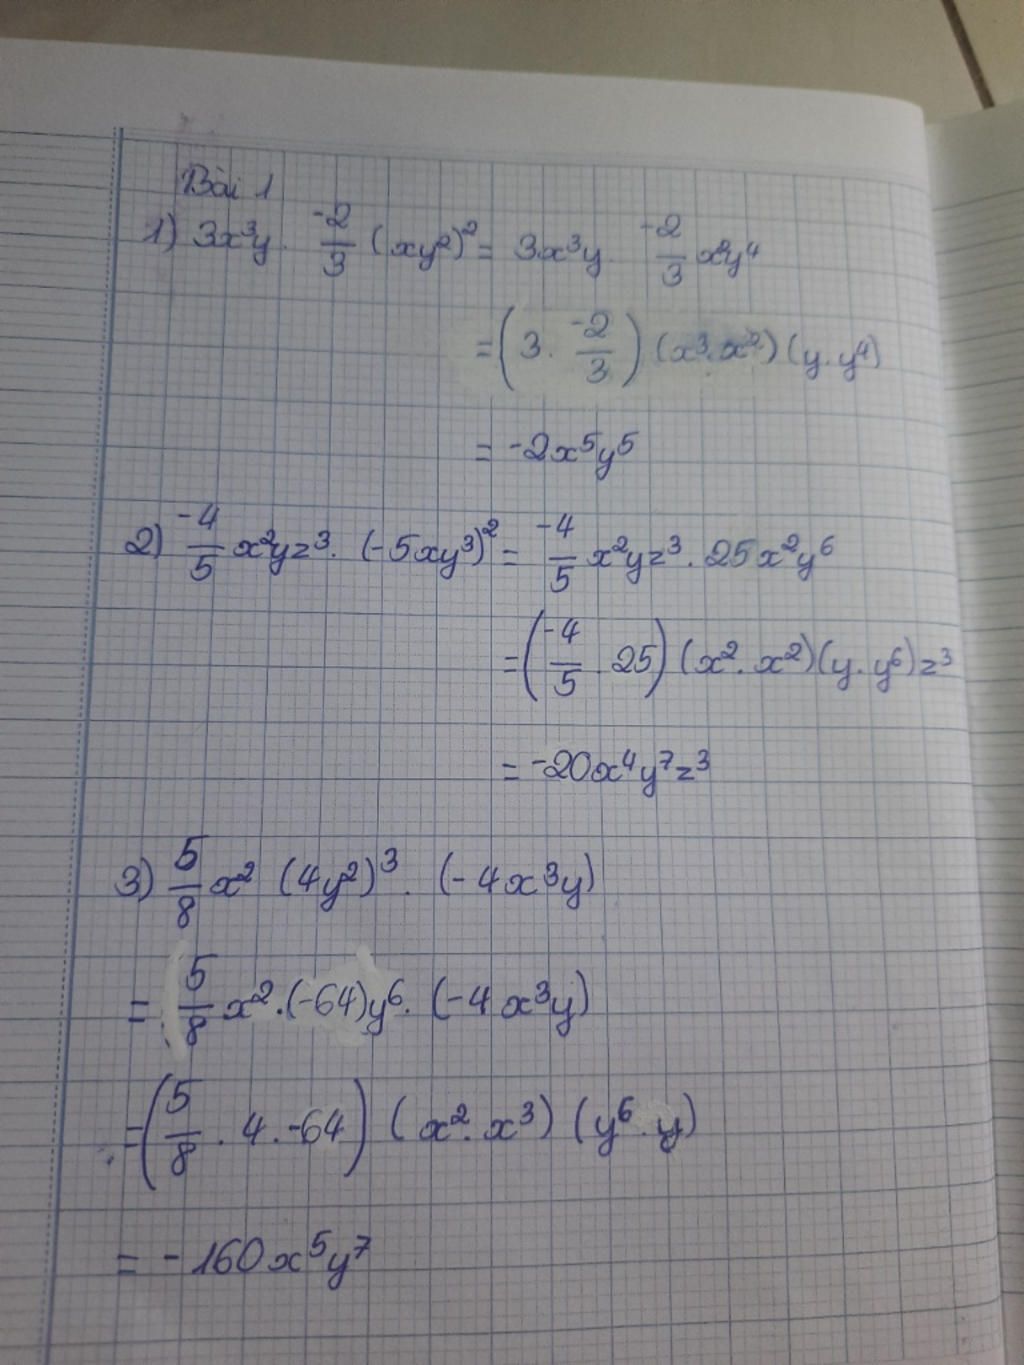 Bài 1
1) 3x³y . -2/3 (xy²)² = 3x³y . -2/3 x²y⁴
= (3 . -2/3) (x³.x²) (y.y⁴)
= -2x⁵y⁵
2) -4/5 x²yz³ . (-5xy³)² = -4/5 x²yz³ . 25x²y⁶
= (-4/5 . 25) (x².x²)(y.y⁶)z³
= -20x⁴y⁷z³
3) 5/8 x² (4y²)³ . (-4x³y)
= 5/8 x².(-64)y⁶. (-4x³y)
= (5/8 . 4 . -64) (x².x³) (y⁶.y)
= -160x⁵y⁷